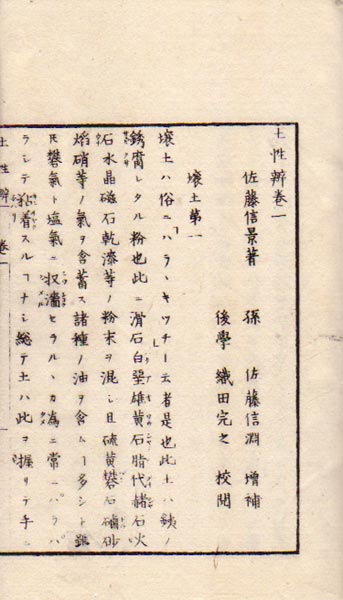 土性辨卷一
佐藤信景著 孫 佐藤信淵 增補
後學 織田完之 校閲
壤土第一
壤土ハ俗ニハラヽキツチト云者是也此土ハ鐵ノ
銹腐シタル粉也此ニ滑石白堊雄黄石脂代赭石火
石水晶磁石乾漆等ノ粉末ヲ混シ且硫黄礬石硇砂
焰硝等ノ氣ヲ含蓄ス諸種ノ油ヲ含ムー多シト雖
𪜈礬氣ト塩氣ニ收濇セラルヽカ為ニ常ニパラパ
ラシテ粘着スルヿナシ總テ土ハ此ヲ握リテ手ニ
土性辨 卷一